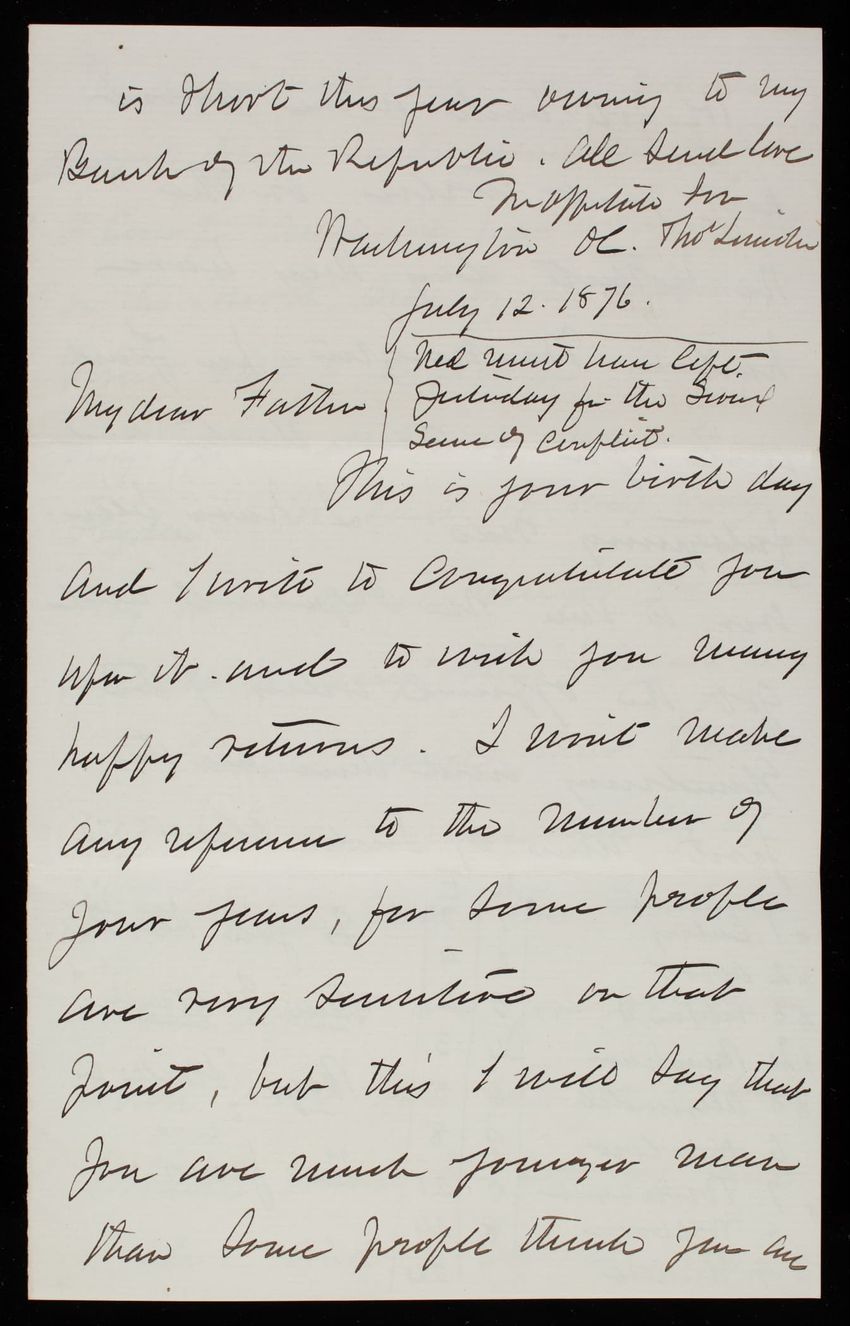 is short this year owing to my
Bank of the Republic. All send love
Yr aff son
Washington DC. Thos Lincoln
July 12. 1876.
Ned must have left
yesterday for the Sioux
Scene of Conflict.
My dear Father
This is your birth day
and I write to Congratulate you
upon it. and to wish you many
happy returns. I won't make
any reference to the number of
your years, for some people
are very sensitive on that
point, but this I will say that
you are much younger man
than some people think you are